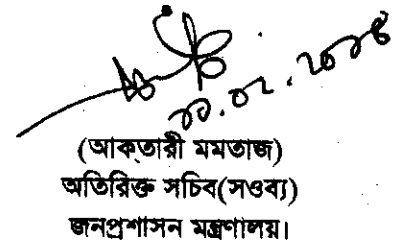 (আকতারী মমতাজ)
অতিরিক্ত সচিব(সওব্য)
জনপ্রশাসন মন্ত্রণালয়।